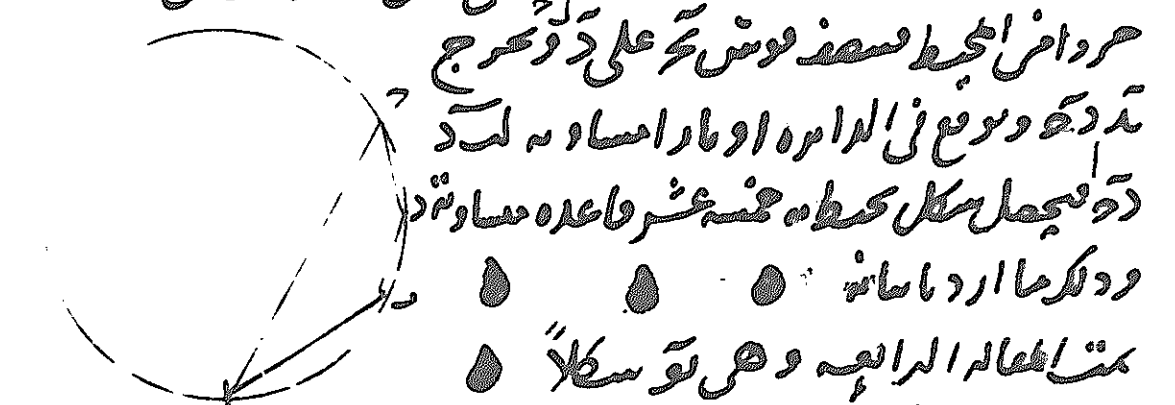 جزوا من المحيط فننصف قوس بج على د ونخرج
بد دج ونوقع في الدائره اوتارا مساويه لبد
دج فيحصل شكل محيط به خمسة عشر قاعده متساوية
وذلك ما اردنا بيانه
تمت المقاله الرابعه وهى يو شكلاً
ج
د
ب